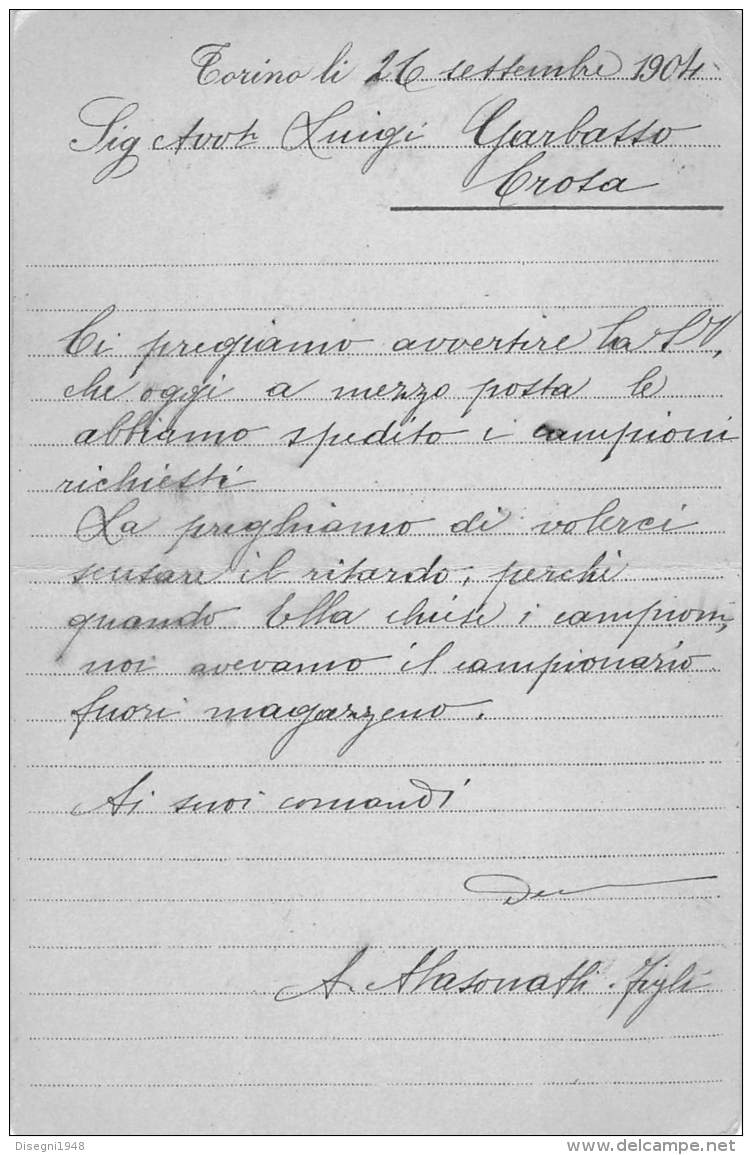 Torino li 26 settembre 1904
Sig Avvt Luigi Garbasso
Crosa
Ci pregiamo avvertire la S V,
che oggi a mezzo posta le
abbiamo spedito i campioni
richiesti
La preghiamo di volerci
scusare il ritardo, perchè
quando Ella chiese i campioni,
noi avevamo il campionario
fuori magazzeno.
Ai suoi comandi
A. Figli
Disegni1948
www.delcampe.net